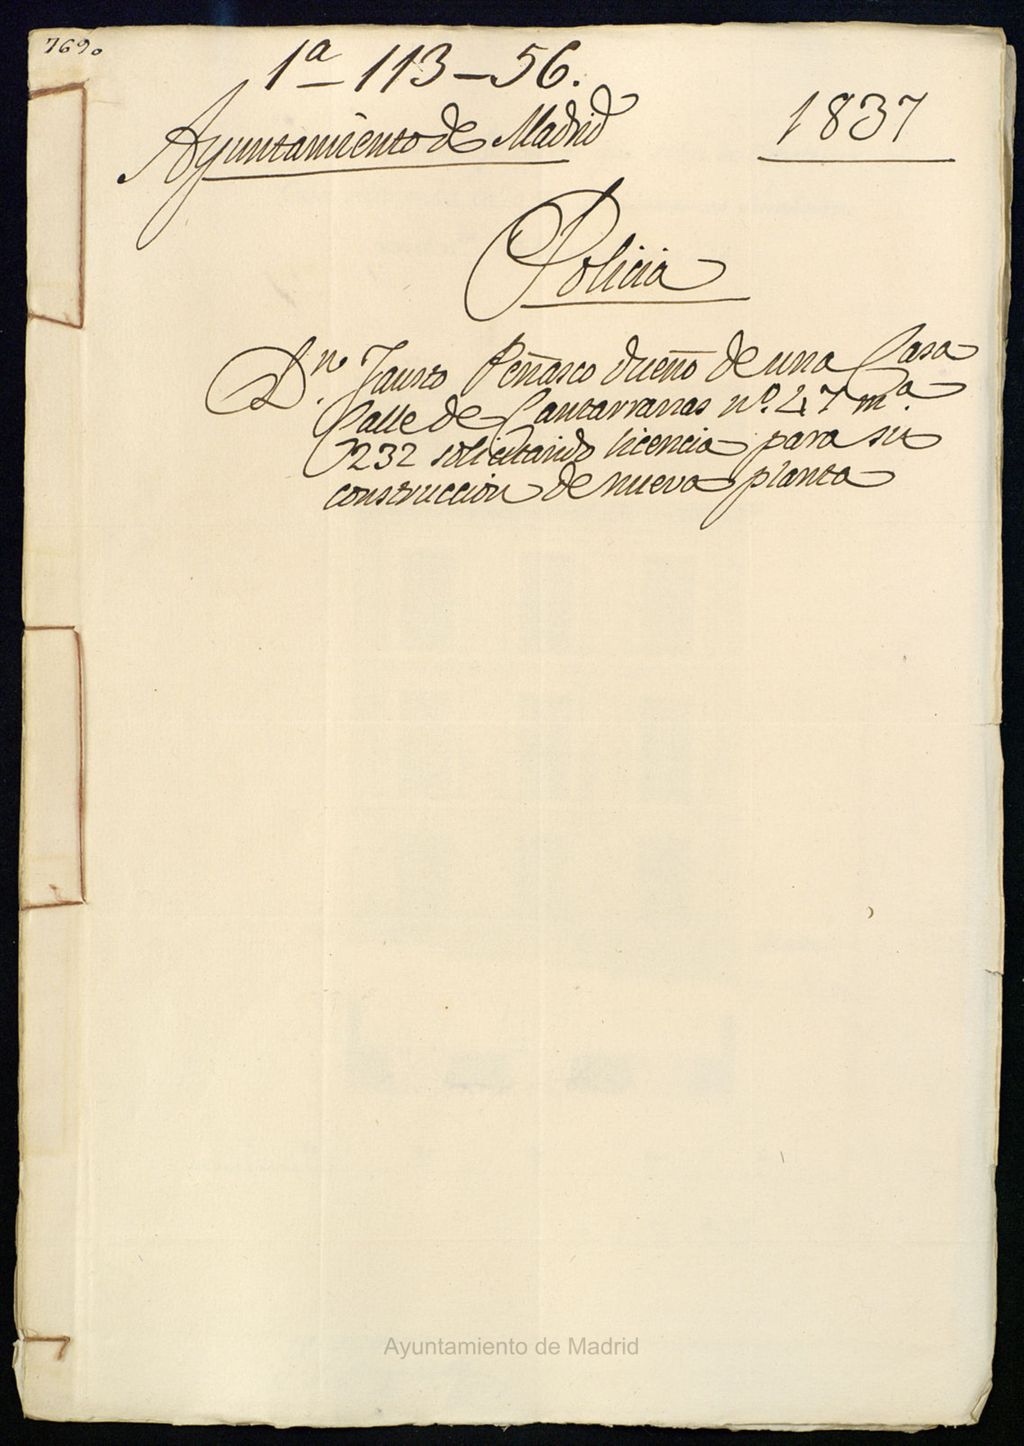 7690
1ª-113-56.
Ayuntamiento de Madrid
1837
Policia
D.n Fausto Peñasco dueño de una Casa
Calle de Cantarranas nº. 47 m.ª
232 solicitando licencia para su
construccion de nueva planta
Ayuntamiento de Madrid